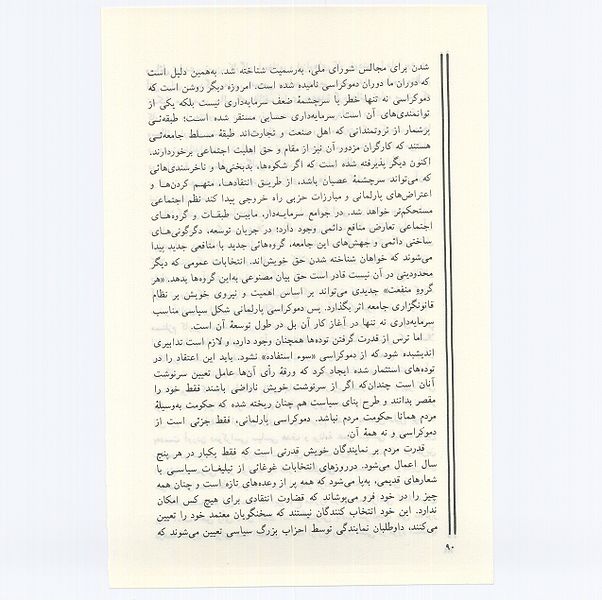 شدن برای مجالس شورای ملی، به‌رسمیت شناخته شد. به‌همین دلیل است
که دوران ما دوران دموکراسی نامیده شده است. امروزه دیگر روشن است که
دموکراسی نه تنها خطر یا سرچشمهٔ ضعف سرمایه‌داری نیست بلکه یکی از
توانمندی‌های آن است. سرمایه‌داری حسابی مستقر شده است؛ طبقه‌ئی
پرشمار از ثروتمندانی که اهل صنعت و تجارت‌اند طبقهٔ مسلط جامعه‌ئی
هستند که کارگران مزدور آن نیز از مقام و حق اهلیت اجتماعی برخوردارند.
اکنون دیگر پذیرفته شده است که اگر شکوه‌ها، بدبختی‌ها و ناخرسندی‌هائی
که می‌تواند سرچشمهٔ عصیان باشد، از طریق انتقادها، متهم کردن‌ها و
اعتراض‌های پارلمانی و مبارزات حزبی راه خروجی پیدا کند نظم اجتماعی
مستحکم‌تر خواهد شد. در جوامع سرمایه‌دار، مابین طبقات و گروه‌های
اجتماعی تعارض منافع دائمی وجود دارد؛ در جریان توسعه، دگرگونی‌های
ساختی دائمی و جهش‌های این جامعه، گروه‌هائی جدید با منافعی جدید پیدا
می‌شوند که خواهان شناخته شدن حق خویش‌اند. انتخابات عمومی که دیگر
محدودیتی در آن نیست قادر است حق بیان مصنوعی به‌این گروه‌ها بدهد. «هر
گروه منفعت» جدیدی می‌تواند بر اساس اهمیت و نیروی خویش بر نظام
قانونگزاری جامعه اثر بگذارد. پس دموکراسی پارلمانی شکل سیاسی مناسب
سرمایه‌داری نه تنها در آغاز کار آن بل در طول توسعهٔ آن است.
اما ترس از قدرت گرفتن توده‌ها همچنان وجود دارد، و لازم است تدابیری
اندیشیده شود که از دموکراسی «سوء استفاده» نشود. باید این اعتقاد را در
توده‌های استثمار شده ایجاد کرد که ورقهٔ رأی آن‌ها عامل تعیین سرنوشت
آنان است چندان‌که اگر از سرنوشت خویش ناراضی باشند فقط خود را
مقصر بدانند و طرح بنای سیاست هم چنان ریخته شده که حکومت به‌وسیلهٔ
مردم همانا حکومت مردم نباشد. دموکراسی پارلمانی، فقط جزئی است از
دموکراسی و نه همهٔ آن.
قدرت مردم بر نمایندگان خویش قدرتی است که فقط یکبار در هر پنج
سال اعمال می‌شود. درروزهای انتخابات غوغائی از تبلیغات سیاسی با
شعارهای قدیمی، به‌پا می‌شود که همه پر از وعده‌های تازه است و چنان همه
چیز را در خود فرو می‌پوشاند که قضاوت انتقادی برای هیچ کس امکان
ندارد. این خود انتخاب کنندگان نیستند که سخنگویان معتمد خود را تعیین
می‌کنند، داوطلبان نمایندگی توسط احزاب بزرگ سیاسی تعیین می‌شوند که
۹۰